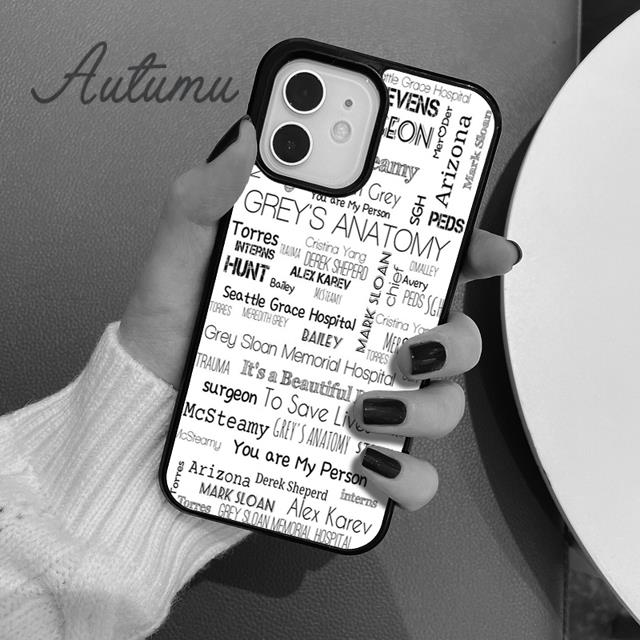 Autumu
Seattle Grace Hospital
EVENS
GEON
Mer♡Der
Arizona
Mark Sloan
eamy
Grey
You are My Person
SGH
PEDS
GREY'S ANATOMY
Torres
INTERNS
TRAUMA
Cristina Yang
DEREK SHEPERD
OMALLEY
HUNT
Bailey
ALEX KAREV
MCSTEAMY
MARK SLOAN
chief
Avery
PEDS SGH
Seattle Grace Hospital
TORRES
MEREDITH GREY
BAILEY
Cristina Yang
Grey Sloan Memorial Hospital
TORRES
TRAUMA
It's a Beautiful
surgeon
To Save Lives
McSteamy
GREY'S ANATOMY
McSteamy
You are My Person
Torres
Arizona
Derek Sheperd
interns
MARK SLOAN
Alex Karev
Torres
GREY SLOAN MEMORIAL HOSPITAL